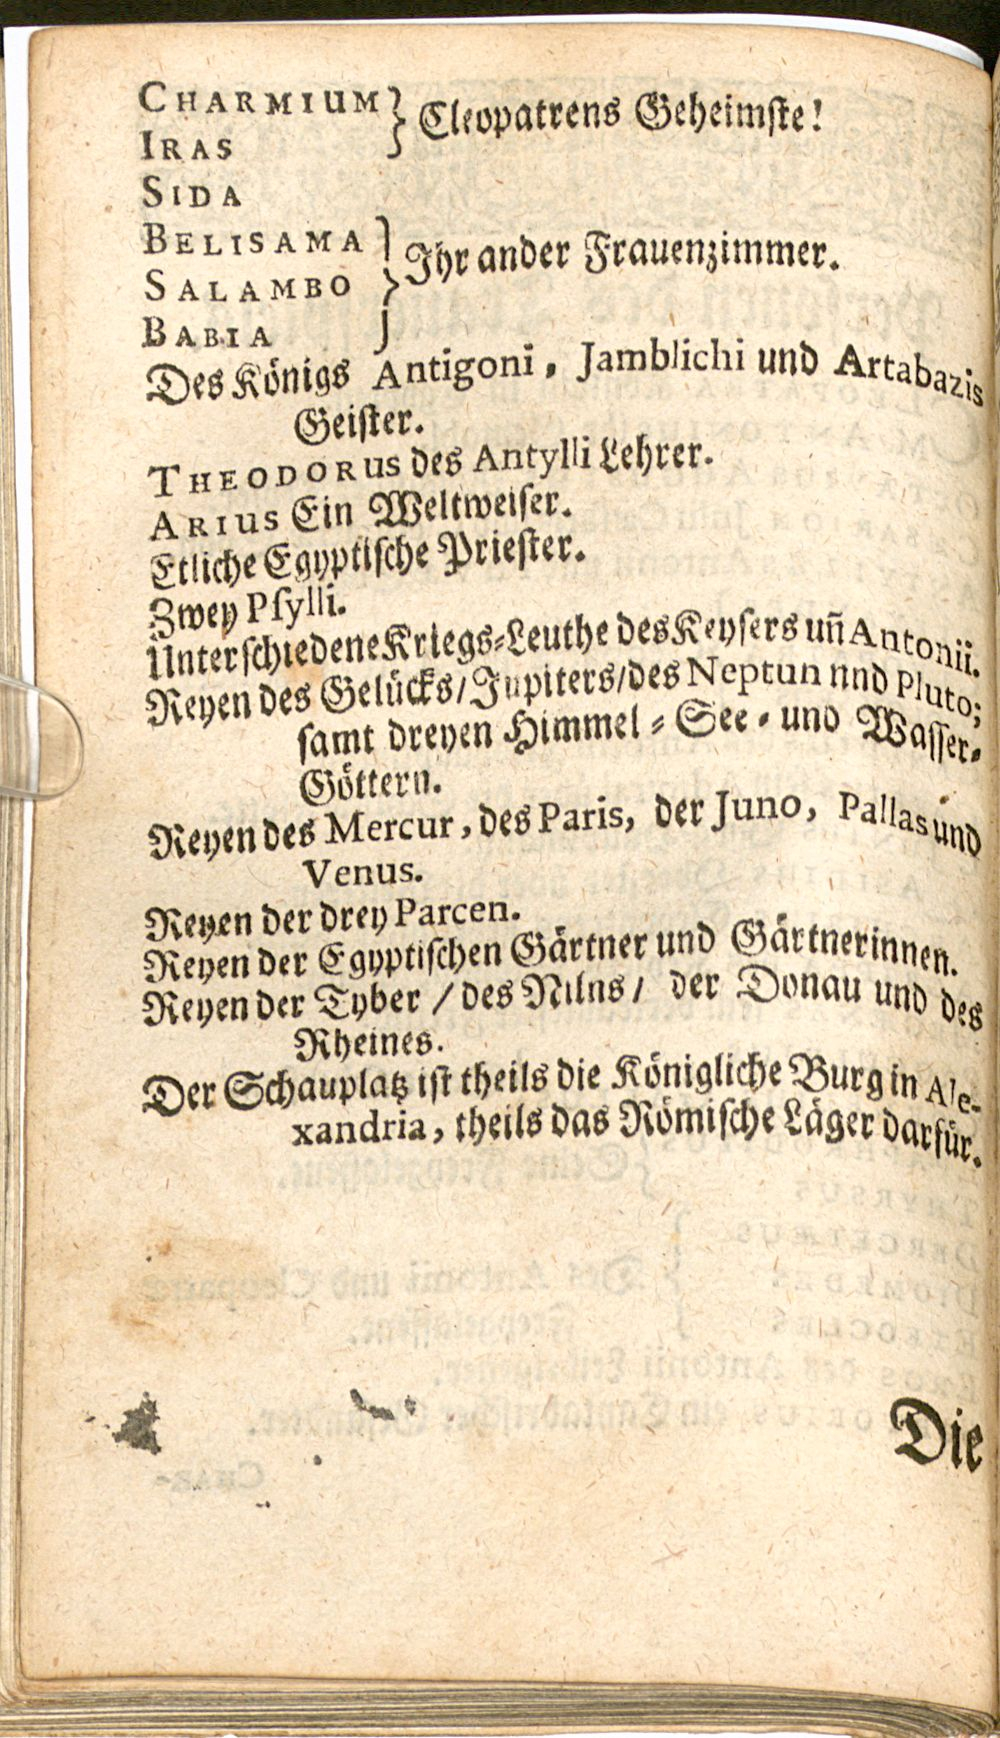 CHARMIUM } Cleopatrens Geheimſte!
IRAS
SIDA
BELISAMA } Ihr ander Frauenzimmer.
SALAMBO
BABIA
Des Königs Antigoni, Jamblichi und Artabazis
Geiſter.
THEODORUS des Antylli Lehrer.
ARIUS Ein Weltweiſer.
Etliche Egyptiſche Prieſter.
Zwey Pſylli.
Unterſchiedene Kriegs-Leuthe des Keyſers uñ Antonii.
Reyen des Gelücks/ Jupiters/ des Neptun nnd Pluto;
ſamt dreyen Himmel-See-und Waſſer-
Göttern.
Reyen des Mercur, des Paris, der Juno, Pallas und
Venus.
Reyen der drey Parcen.
Reyen der Egyptiſchen Gärtner und Gärtnerinnen.
Reyen der Tyber / des Nilns / der Donau und des
Rheines.
Der Schauplatz iſt theils die Königliche Burg in Ale-
xandria, theils das Römiſche Läger darfür.
Die